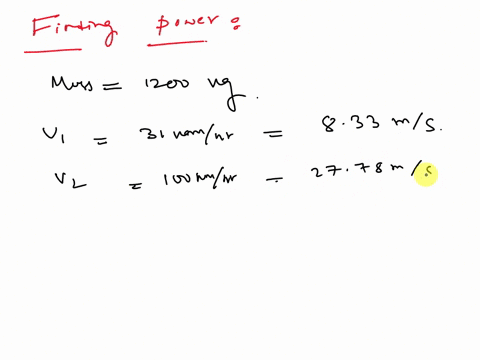 Finding power:
Mass = 1200 kg.
V1 = 31 km/hr = 8.33 m/s.
V2 = 100 km/hr = 27.78 m/s